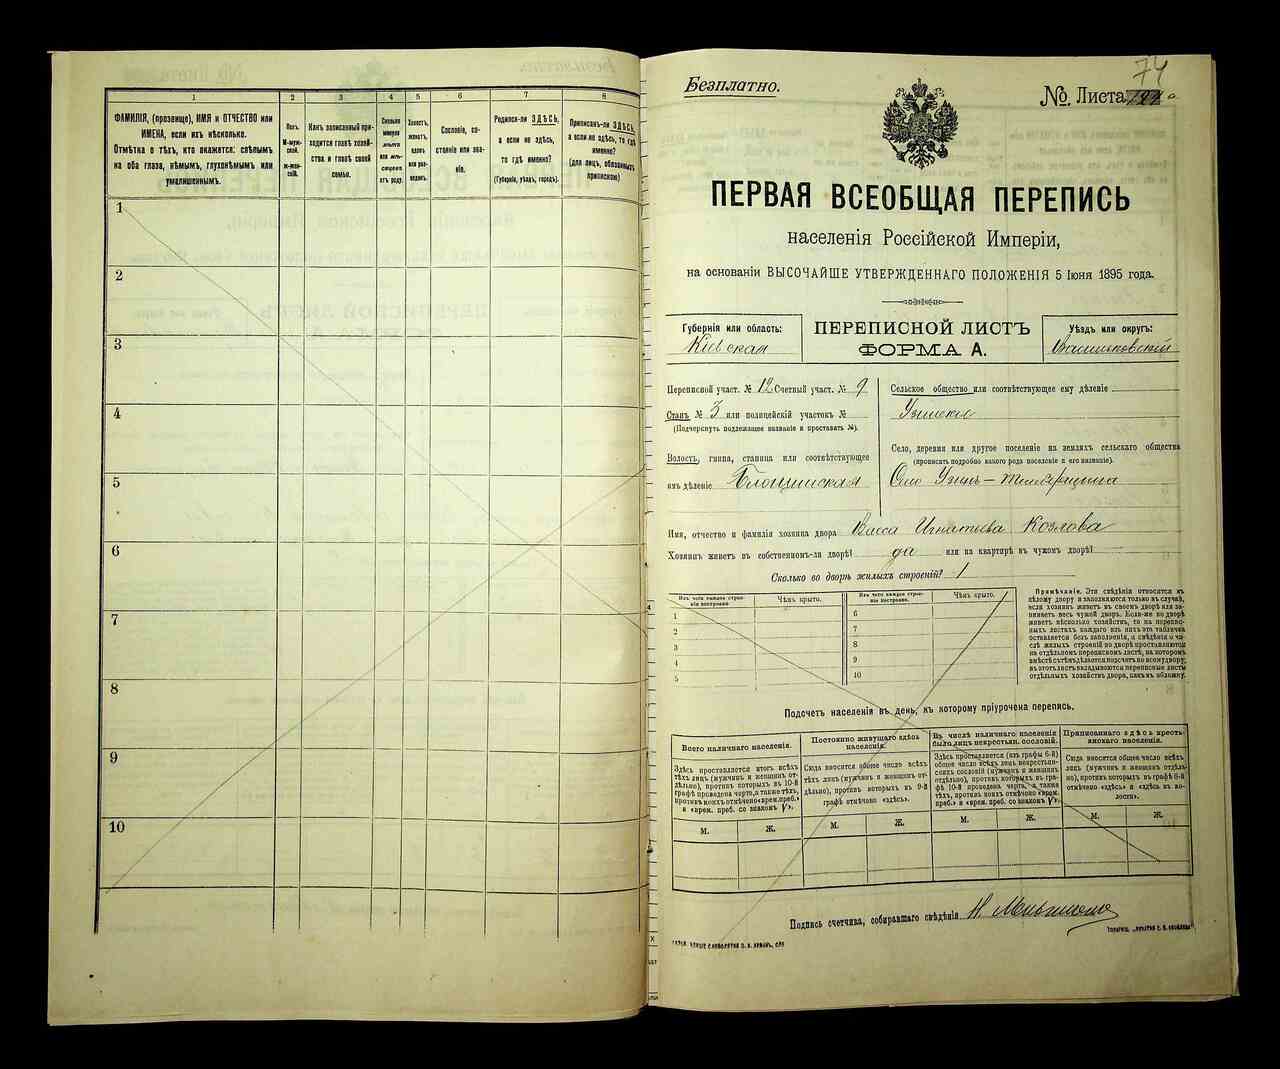 1
2
3
4
5
6
7
8
ФАМИЛІЯ, (прозвище), ИМЯ и ОТЧЕСТВО или
ИМЕНА, если ихъ нѣсколько.
Отмѣтка о тѣхъ, кто окажется: слѣпымъ
на оба глаза, нѣмымъ, глухонѣмымъ или
умалишеннымъ.
Полъ.
М-муж-
ской.
ж-жен-
скій.
Какъ записанный при-
ходится главѣ хозяй-
ства и главѣ своей
семьи.
Сколько
минуло
лѣтъ
или мѣ-
сяцевъ
отъ роду.
Холостъ,
женатъ,
вдовъ
или раз-
веденъ.
Сословіе, со-
стояніе или зва-
ніе.
Родился-ли ЗДѢСЬ,
а если не здѣсь,
то гдѣ именно?
(Губернія, уѣздъ, городъ).
Приписанъ-ли ЗДѢСЬ,
а если не здѣсь, то гдѣ
именно?
(для лицъ, обязанныхъ
припискою)
1
2
3
4
5
6
7
8
9
10
74
Безплатно.
№ Листа
ПЕРВАЯ ВСЕОБЩАЯ ПЕРЕПИСЬ
населенія Россійской Имперіи,
на основаніи ВЫСОЧАЙШЕ УТВЕРЖДЕННАГО ПОЛОЖЕНІЯ 5 Іюня 1895 года.
Губернія или область:
Кіевская
ПЕРЕПИСНОЙ ЛИСТЪ
ФОРМА А.
Уѣздъ или округъ:
Васильковскій
Переписной участ. № 12 Счетный участ. № 9
Станъ № 3 или полицейскій участокъ №
(Подчеркнуть подлежащее названіе и проставить №).
Волость, гмина, станица или соотвѣтствующее
имъ дѣленіе
Сельское общество или соотвѣтствующее ему дѣленіе
Село, деревня или другое поселеніе на земляхъ сельскаго общества
(прописать подробно какого рода поселеніе и его названіе).
Село Узинъ
Имя, отчество и фамилія хозяина двора Васса Игнатьева Козлова
Хозяинъ живетъ въ собственномъ-ли дворѣ? да или на квартирѣ въ чужомъ дворѣ?
Сколько во дворѣ жилыхъ строеній? 1
Изъ чего каждое строе-
ніе построено.
Чѣмъ крыто.
Изъ чего каждое строе-
ніе построено.
Чѣмъ крыто.
1
2
3
4
5
6
7
8
9
10
Примѣчаніе. Эти свѣдѣнія относятся къ
цѣлому двору и заполняются только въ случаѣ,
если хозяинъ живетъ въ своемъ дворѣ или за-
нимаетъ весь чужой дворъ. Если-же во дворѣ
живетъ нѣсколько хозяйствъ, то на перепис-
ныхъ листахъ каждаго изъ нихъ эта табличка
оставляется безъ заполненія, а свѣдѣнія о чи-
слѣ жилыхъ строеній во дворѣ проставляются
на отдѣльномъ переписномъ листѣ, на которомъ
вмѣстѣ съ тѣмъ дѣлается подсчетъ по всему двору;
въ этотъ листъ вкладываются переписные листы
отдѣльныхъ хозяйствъ двора, какъ въ обложку.
Подсчетъ населенія въ день, къ которому пріурочена перепись.
Всего наличнаго населенія.
Постоянно живущаго здѣсь
населенія.
Въ числѣ наличнаго населенія
было лицъ некрестьян. сословій.
Приписаннаго здѣсь кресть-
янскаго населенія.
Здѣсь проставляется итогъ всѣхъ
тѣхъ лицъ (мужчинъ и женщинъ от-
дѣльно), противъ которыхъ въ 10-й
графѣ проведена черта, а также тѣхъ,
противъ коихъ отмѣчено «врем. преб.»
и «врем. преб. со знакомъ V».
Сюда вносится общее число всѣхъ
тѣхъ лицъ (мужчинъ и женщинъ от-
дѣльно), противъ которыхъ въ 9-й
графѣ отмѣчено «здѣсь».
Здѣсь проставляется (изъ графы 6-й)
общее число всѣхъ лицъ некрестьян-
скихъ сословій (мужчинъ и женщинъ
отдѣльно), противъ которыхъ въ гра-
фѣ 10 проведена черта, а также
тѣхъ, противъ коихъ отмѣчено «врем.
преб.» и «врем. преб. со знакомъ V».
Сюда вносится общее число всѣхъ
лицъ (мужчинъ и женщинъ отдѣль-
но), противъ которыхъ въ графѣ 8-й
отмѣчено «здѣсь» и «здѣсь въ во-
лости».
М. Ж. М. Ж. М. Ж. М. Ж.
Подпись счетчика, собиравшаго свѣдѣнія